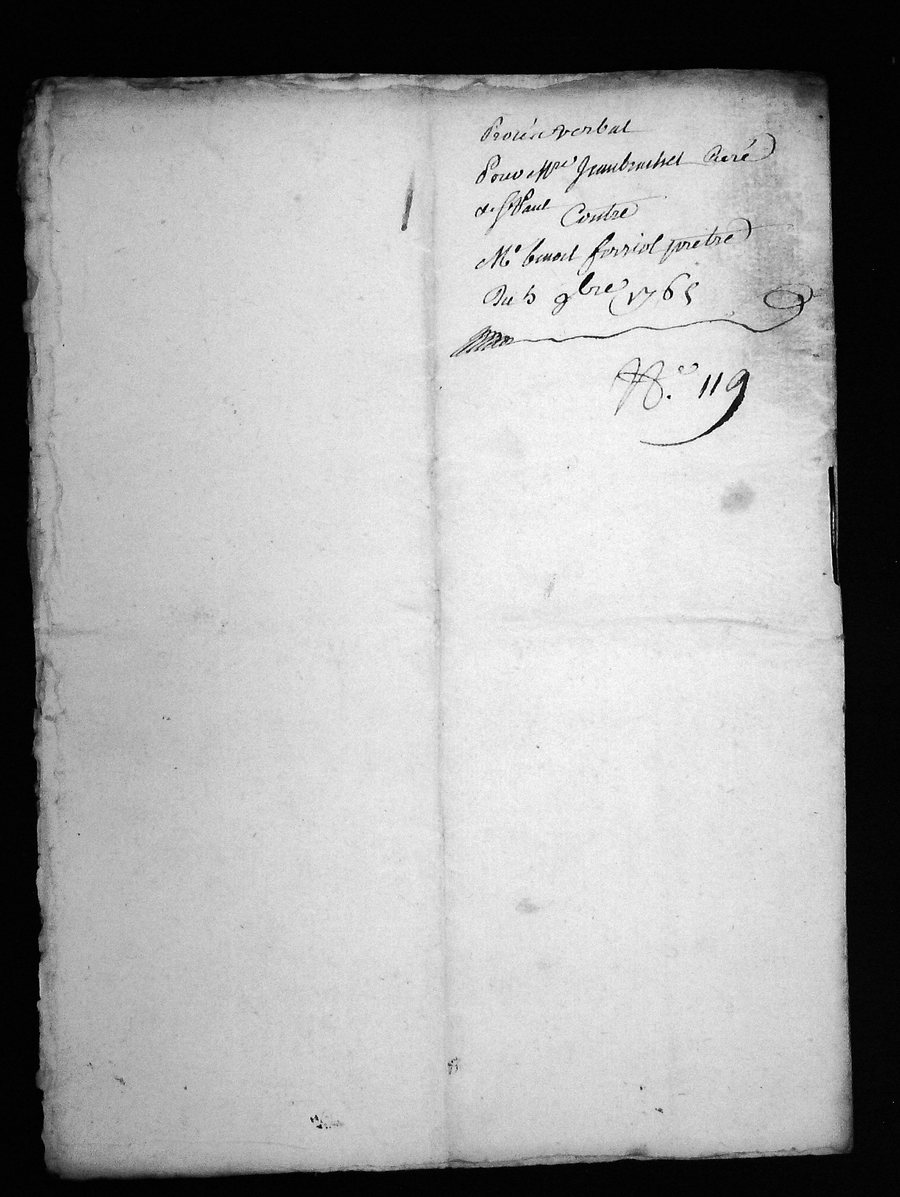 Procès verbal
Pour Mre Jean brachet Curé
de St Paul Contre
Me benoit ferriol prêtre
Du 5 9bre 1765
N.o 119